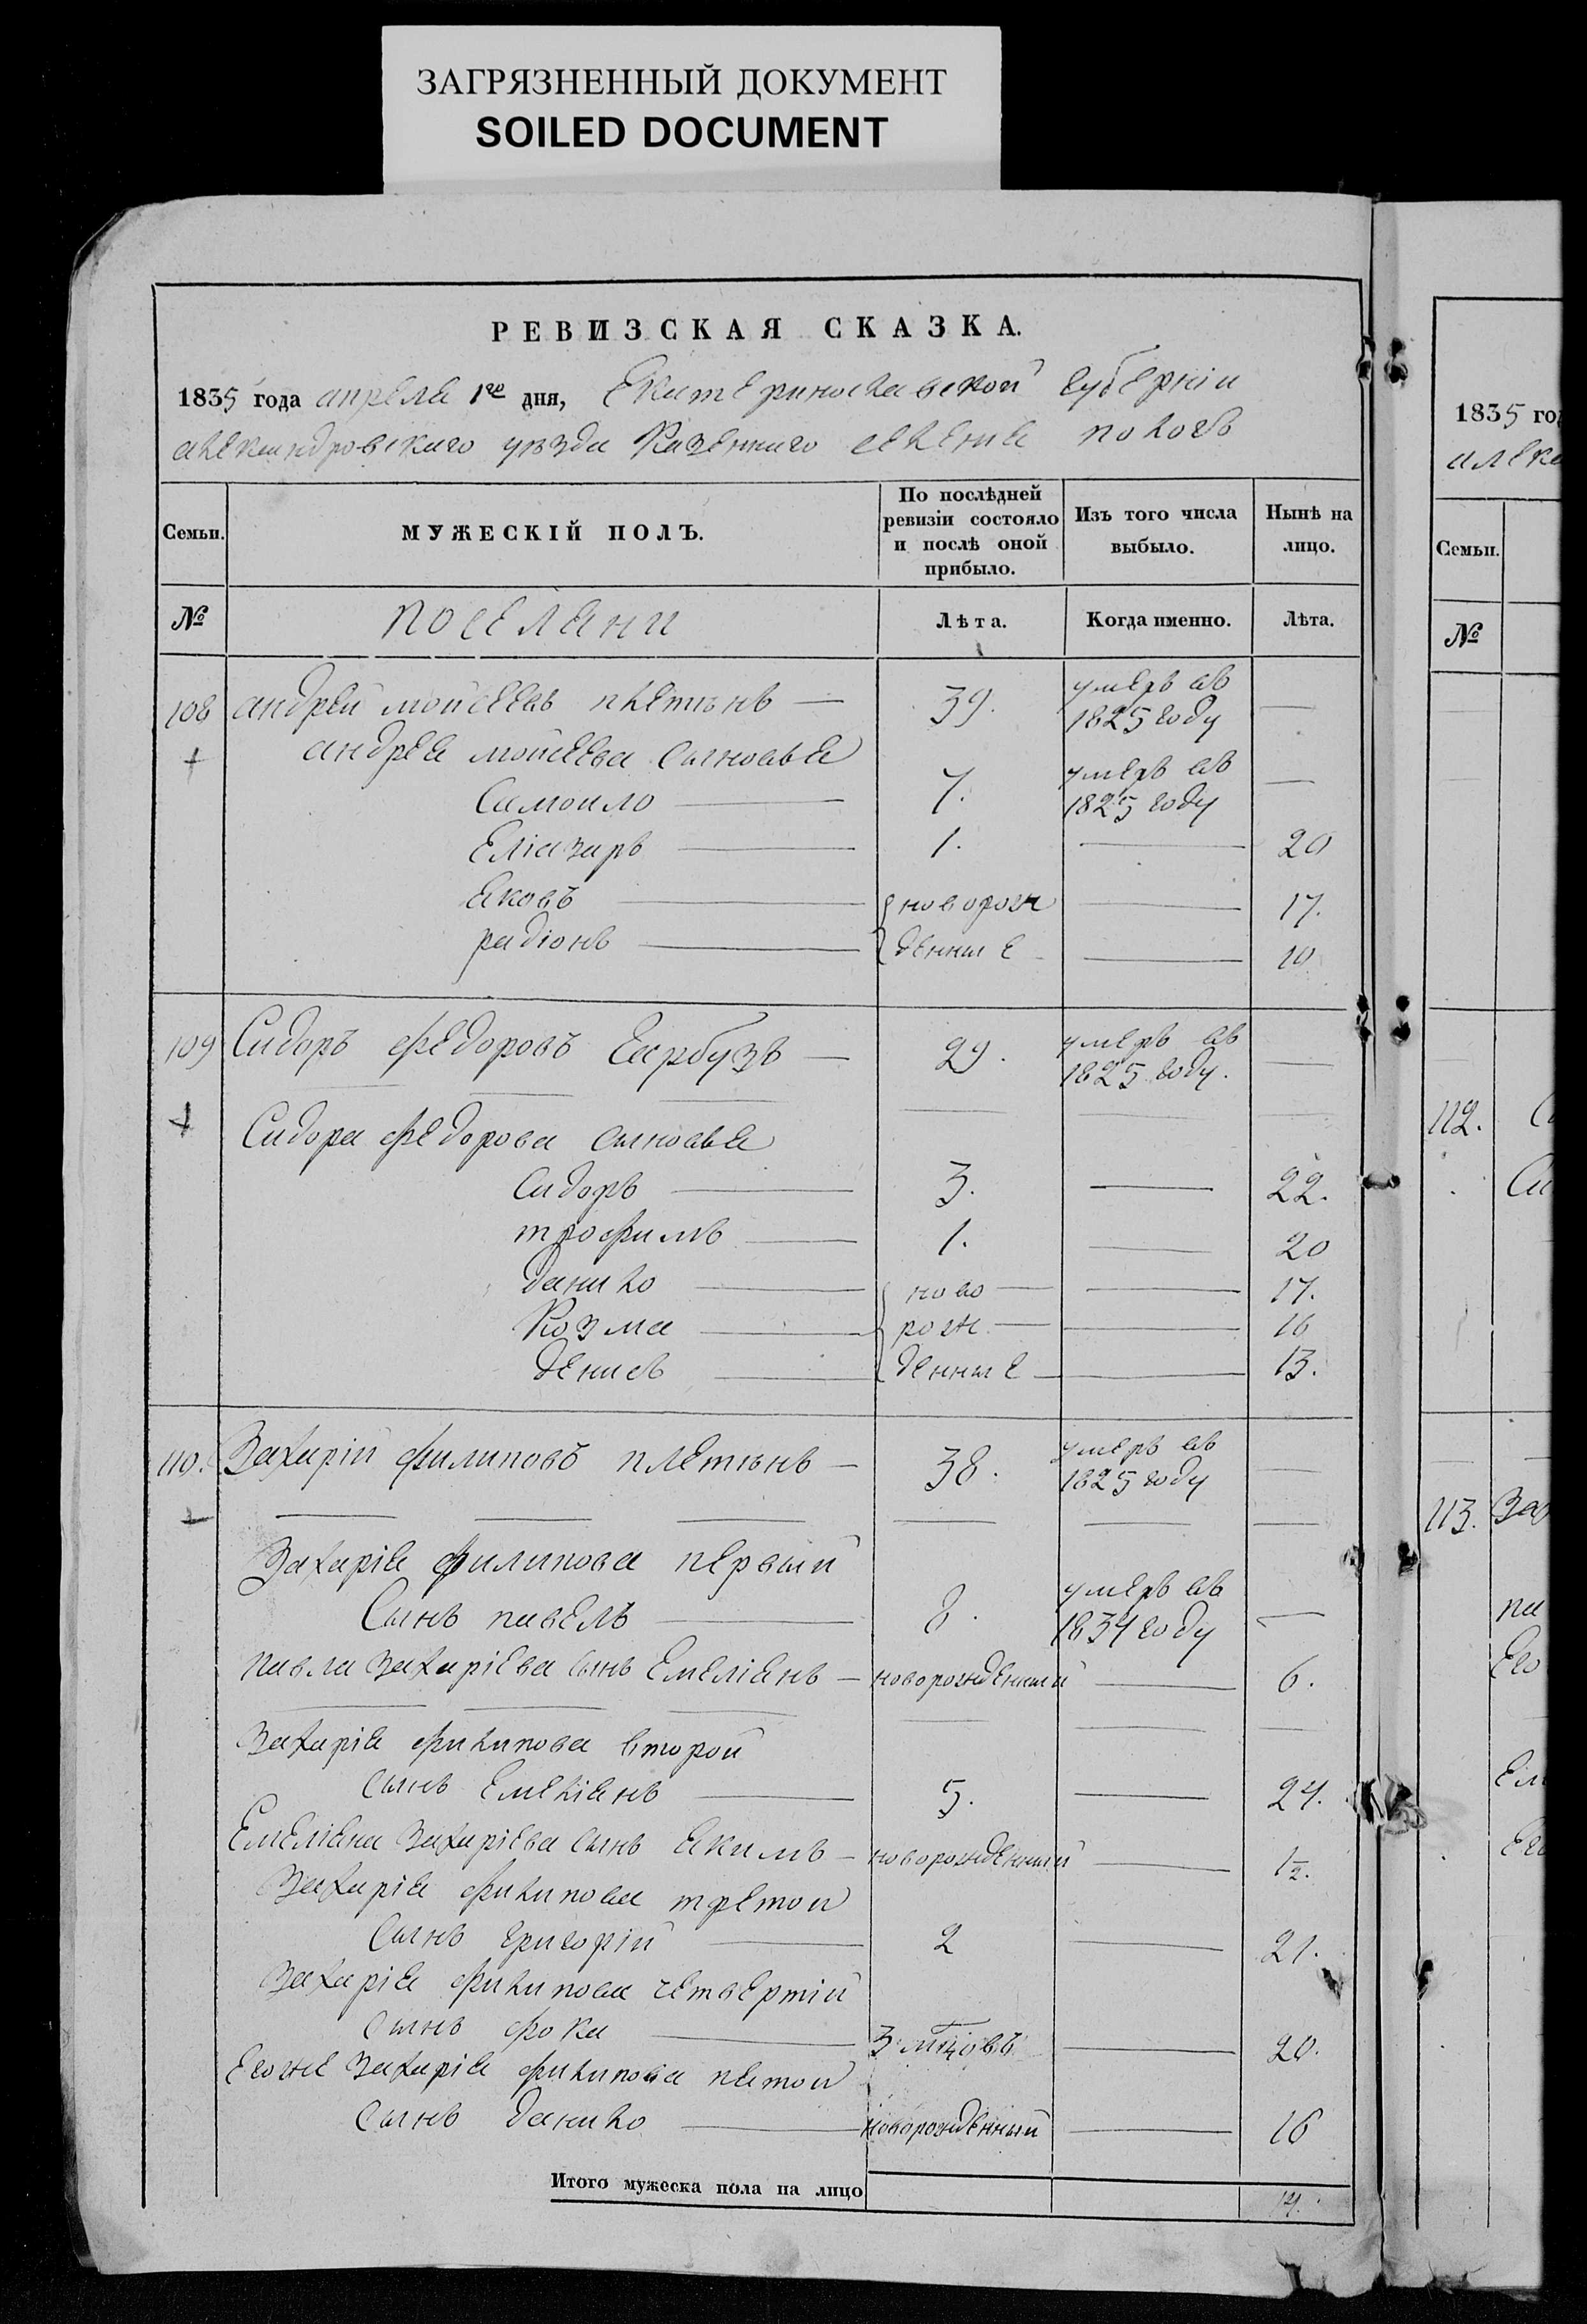 ЗАГРЯЗНЕННЫЙ ДОКУМЕНТ
SOILED DOCUMENT
РЕВИЗСКАЯ СКАЗКА.
1835 года апреля 1го дня, Екатеринославской губерніи
александровскаго уѣзда Казеннаго селения пологъ
Семьи. МУЖЕСКІЙ ПОЛЪ. По послѣдней ревизіи состояло и послѣ оной прибыло. Изъ того числа выбыло. Нынѣ на лицо.
№ поселяни Лѣта. Когда именно. Лѣта.
108 андрей мойсеевъ плетѣнь — 39. умеръ въ 1825 году —
андрея мойсеева сыновья
Самоило — 7. умеръ въ 1825 году —
Еліазаръ — 1. — 20
яковъ — новорож — 17.
радіонъ — денные — 10
109 Сидоръ федоровъ гарбузъ — 29. умеръ въ 1825 году. —
Сидора федорова сыновья
Сидоръ — 3. — 22.
трофимъ — 1. — 20
данило — ново — — 17.
Козма — рож — — 16
денисъ — денные — 13.
110. Захарій филиповъ плетѣнь — 38. умеръ въ 1825 году —
Захарія филипова первый
Сынъ павелъ — 8. умеръ въ 1834 году —
павла захаріева сынъ Емеліянъ — новорожденный — 6.
Захарія филипова второй
сынъ Емеліянъ — 5. — 24.
Емеліяна Захаріева сынъ якимъ — новорожденный — 1/2.
Захарія филипова третой
Сынъ григорій — 2 — 21.
Захарія филипова четвертій
Сынъ фока — 3 мцовъ — 20.
Егоже Захарія филипова пятой
Сынъ данило — новорожденный — 16
Итого мужеска пола на лицо 14.
1835 год
алекс
Семьи.
№
112.
113. Зах
па
Его
Ем
Его